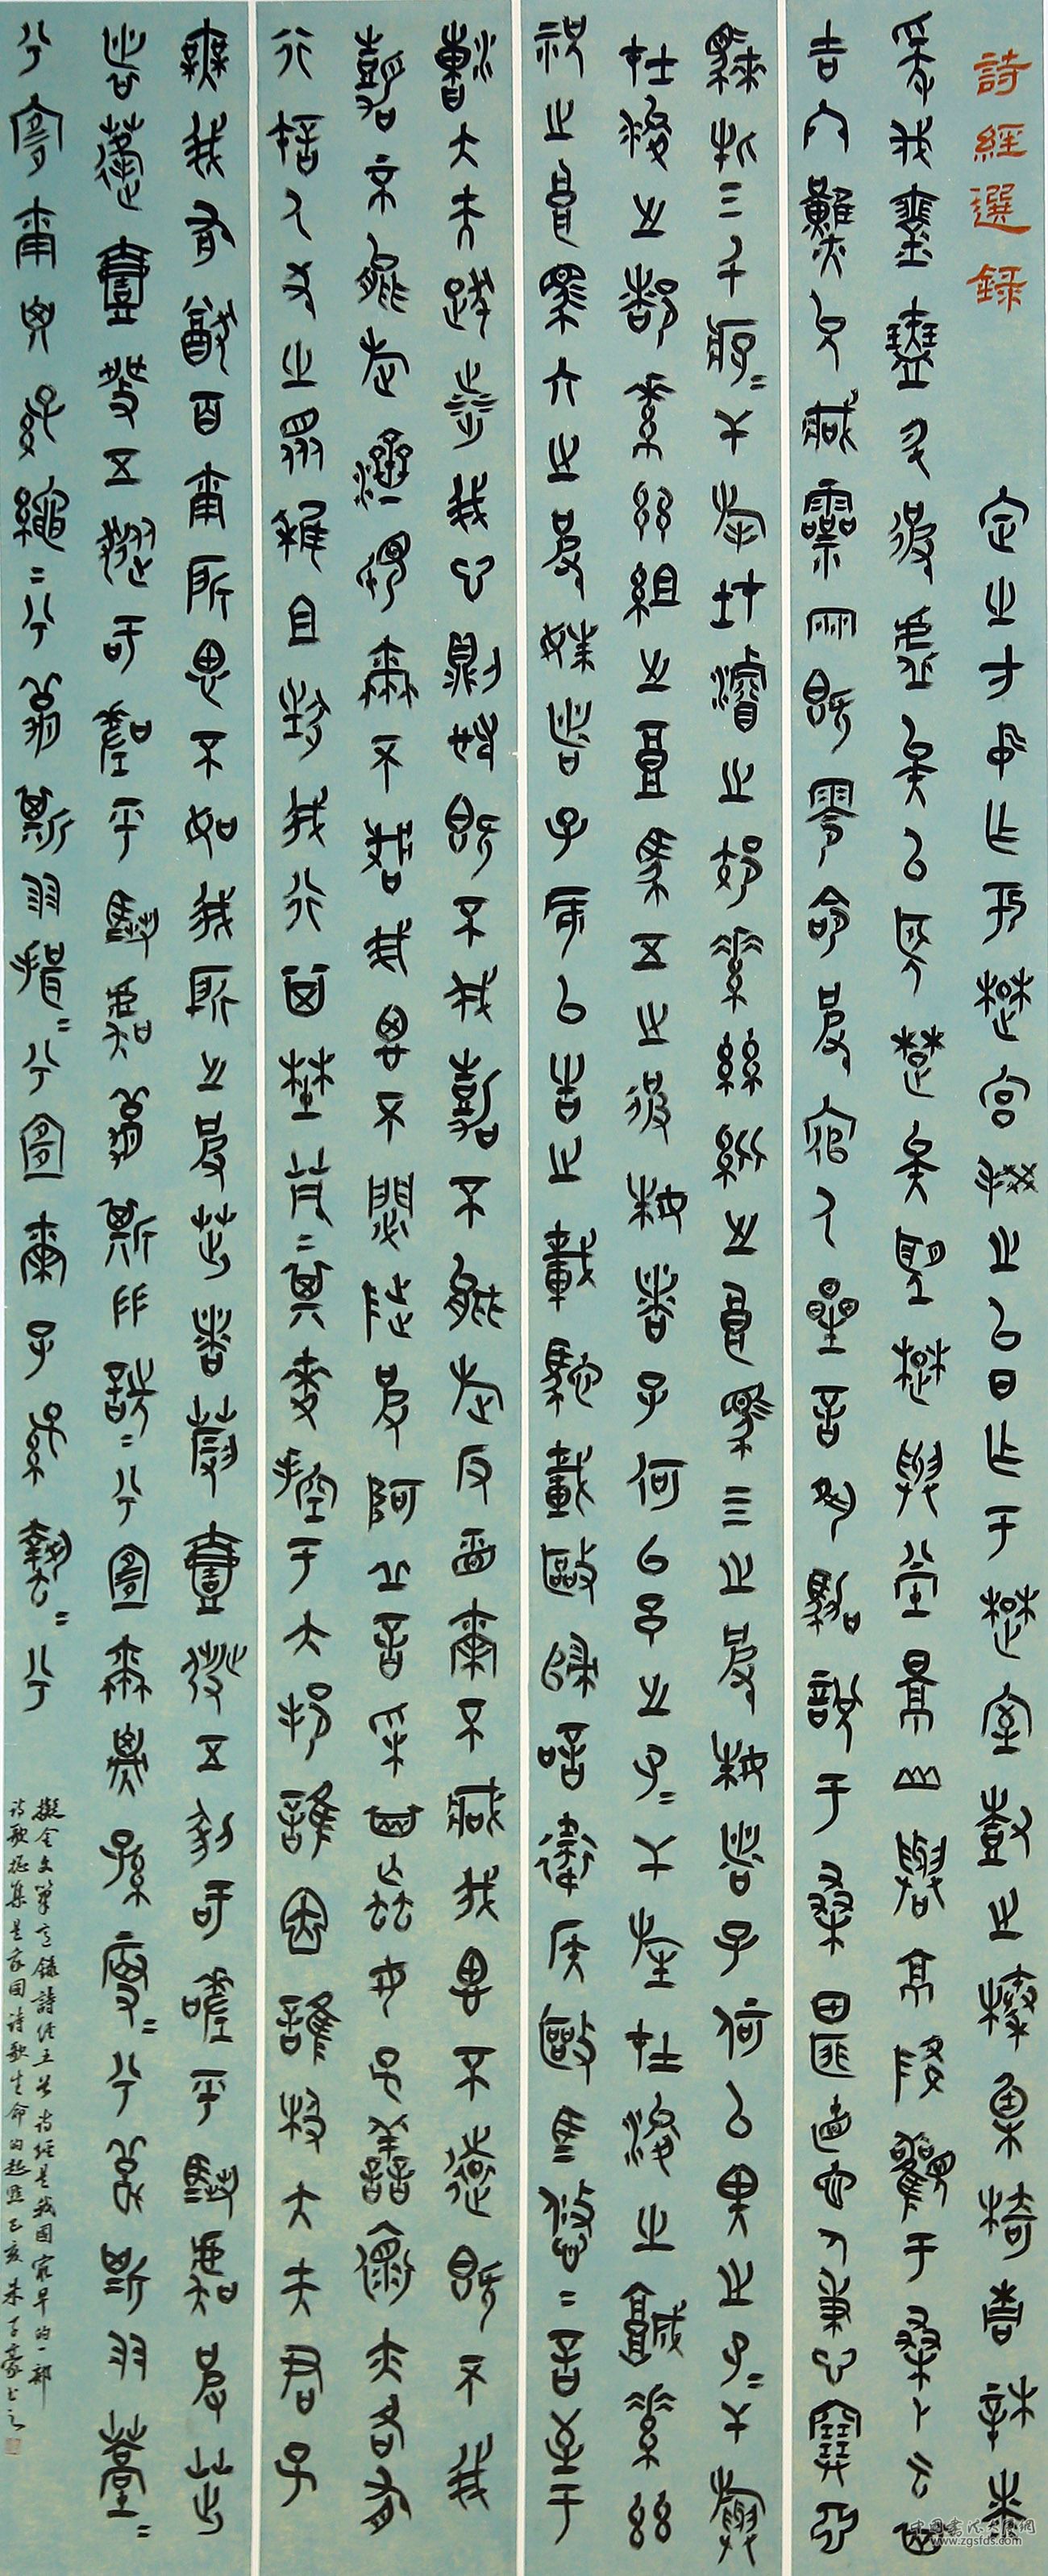 詩經選錄
定之方中作于楚宮揆之以日作于楚室樹之榛栗椅桐梓漆
爰伐琴瑟升彼虛矣以望楚矣望楚與堂景山與京降觀于桑卜云其
吉終然允臧靈雨既零命彼倌人星言夙駕說于桑田匪直也人秉心塞淵
騋牝三千孑〻干旄在浚之郊素絲紕之良馬四之彼姝者子何以畀之孑〻干旟
在浚之都素絲組之良馬五之彼姝者子何以予之孑〻干旌在浚之城素絲
祝之良馬六之彼姝者子何以告之載馳載驅歸唁衛侯驅馬悠〻言至于
漕大夫跋涉我心則憂既不我嘉不能旋反視爾不臧我思不遠既不我
嘉不能旋濟視爾不臧我思不閟陟彼阿丘言采其蝱女子善懷亦各有
行許人尤之眾稚且狂我行其野芃〻其麥控于大邦誰因誰極大夫君子
無我有尤百爾所思不如我所之彼茁者葭壹發五豝于嗟乎騶虞彼茁
者蓬壹發五豵于嗟乎騶虞螽斯羽詵〻兮宜爾子孫振〻兮螽斯羽薨〻
兮宜爾子孫繩〻兮螽斯羽揖〻兮宜爾子孫蟄〻兮
擬金文筆意錄詩經五首詩經是我國最早的一部
詩歌總集是我國詩歌生命的起點己亥朱子豪書之
www.zgsfds.com